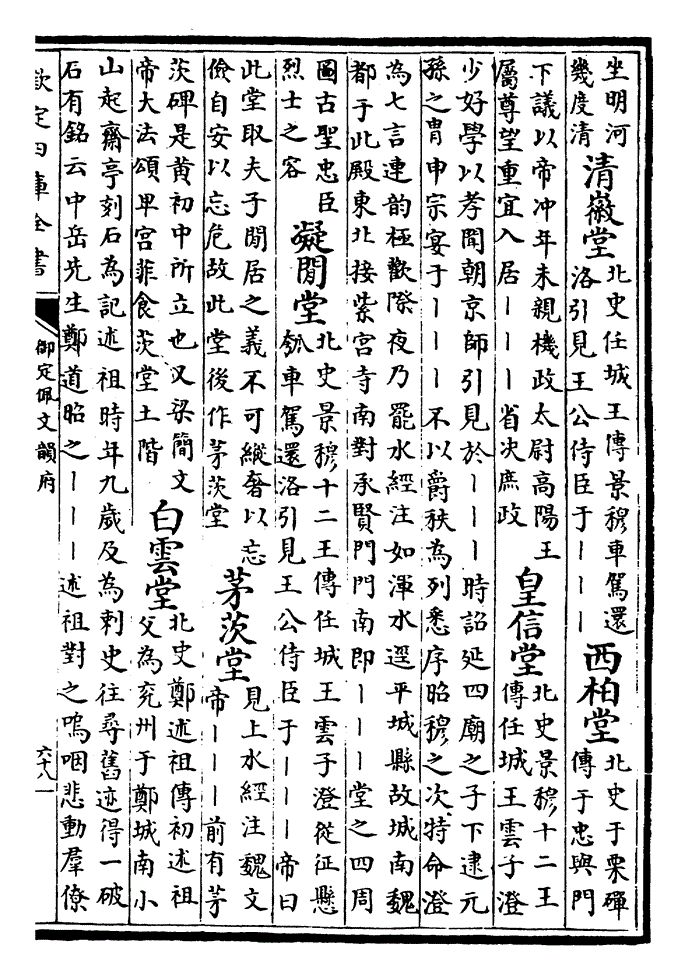 坐明河
幾度清
清徽堂
北史任城王傳景穆車駕還
洛引見王公侍臣于丨丨丨
西柏堂
北史于栗磾
傳于忠與門
下議以帝冲年未親機政太尉高陽王
屬尊望重宜入居丨丨丨省决庶政
皇信堂
北史景穆十二王
傳任城王雲子澄
少好學以孝聞朝京師引見於丨丨丨時詔延四廟之子下逮元
孫之胄申宗宴于丨丨丨不以爵秩為列悉序昭穆之次特命澄
為七言連韵極歡際夜乃罷水經注如渾水逕平城縣故城南魏
都于此殿東北接紫宮寺南對承賢門門南即丨丨丨堂之四周
圖古聖忠臣
烈士之容
凝閒堂
北史景穆十二王傳任城王雲子澄從征懸
瓠車駕還洛引見王公侍臣于丨丨丨帝曰
此堂取夫子閒居之義不可縱奢以忘
儉自安以忘危故此堂後作茅茨堂
茅茨堂
見上水經注魏文
帝丨丨丨前有茅
茨碑是黄初中所立也又梁簡文
帝大法頌卑宮菲食茨堂土階
白雲堂
北史鄭述祖傳初述祖
父為兖州于鄭城南小
山起齋亭刻石為記述祖時年九歲及為刺史往尋舊迹得一破
石有銘云中岳先生鄭道昭之丨丨丨述祖對之嗚咽悲動羣僚
欽定四庫全書
御定佩文韻府
六十八一